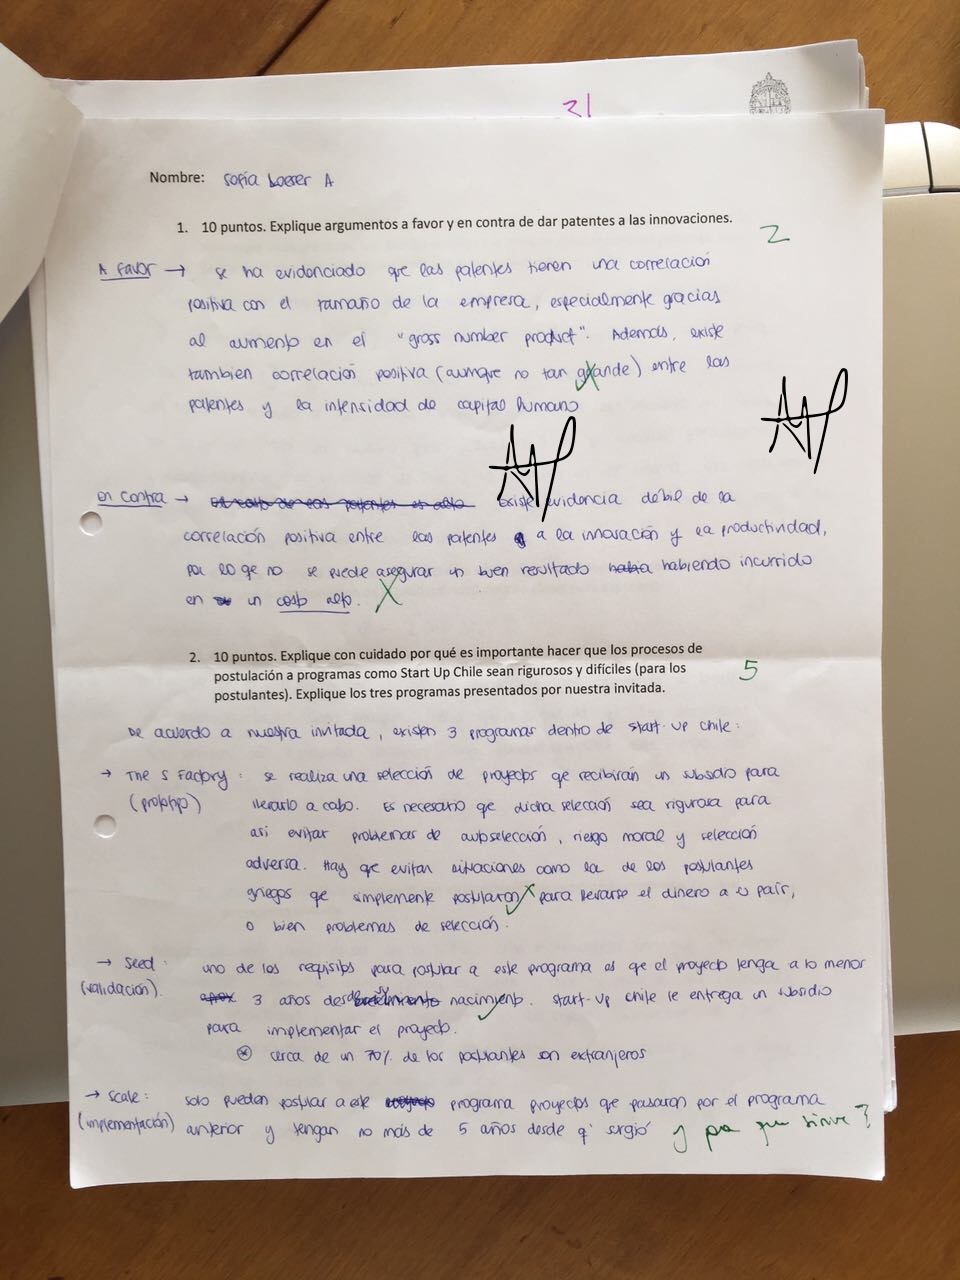 31
Nombre: Sofía Loeser A
1. 10 puntos. Explique argumentos a favor y en contra de dar patentes a las innovaciones.
2
A favor → se ha evidenciado que las patentes tienen una correlación
positiva con el tamaño de la empresa, especialmente gracias
al aumento en el "gross number product". Además, existe
tambien correlación positiva (aunque no tan grande) entre las
patentes y la intensidad de capital humano
En contra → El costo de las patentes es alto Existe evidencia débil de la
correlación positiva entre las patentes a la innovación y la productividad,
por lo qe no se puede asegurar un buen resultado habiendo incurrido
en un costo alto.
2. 10 puntos. Explique con cuidado por qué es importante hacer que los procesos de
postulación a programas como Start Up Chile sean rigurosos y difíciles (para los
postulantes). Explique los tres programas presentados por nuestra invitada.
5
De acuerdo a nuestra invitada, existen 3 programas dentro de start-up chile:
→ The S Factory: se realiza una selección de proyectos qe recibirán un subsidio para
(prototipo) llevarlo a cabo. Es necesario que dicha selección sea rigurosa para
asi evitar problemas de autoselección, riesgo moral y selección
adversa. Hay qe evitar situaciones como la de los postulantes
griegos qe simplemente postularon para llevarse el dinero a su país,
o bien problemas de selección.
→ Seed: uno de los requisitos para postular a este programa es qe el proyecto tenga a lo menor
(validación). 3 años desde nacimiento. Start-up chile le entrega un subsidio
para implementar el proyecto.
* cerca de un 70% de los postulantes son extranjeros
→ Scale: solo pueden postular a este programa proyectos qe pasaron por el programa
(implementación) anterior y tengan no más de 5 años desde q' surgió y pa que sirve?